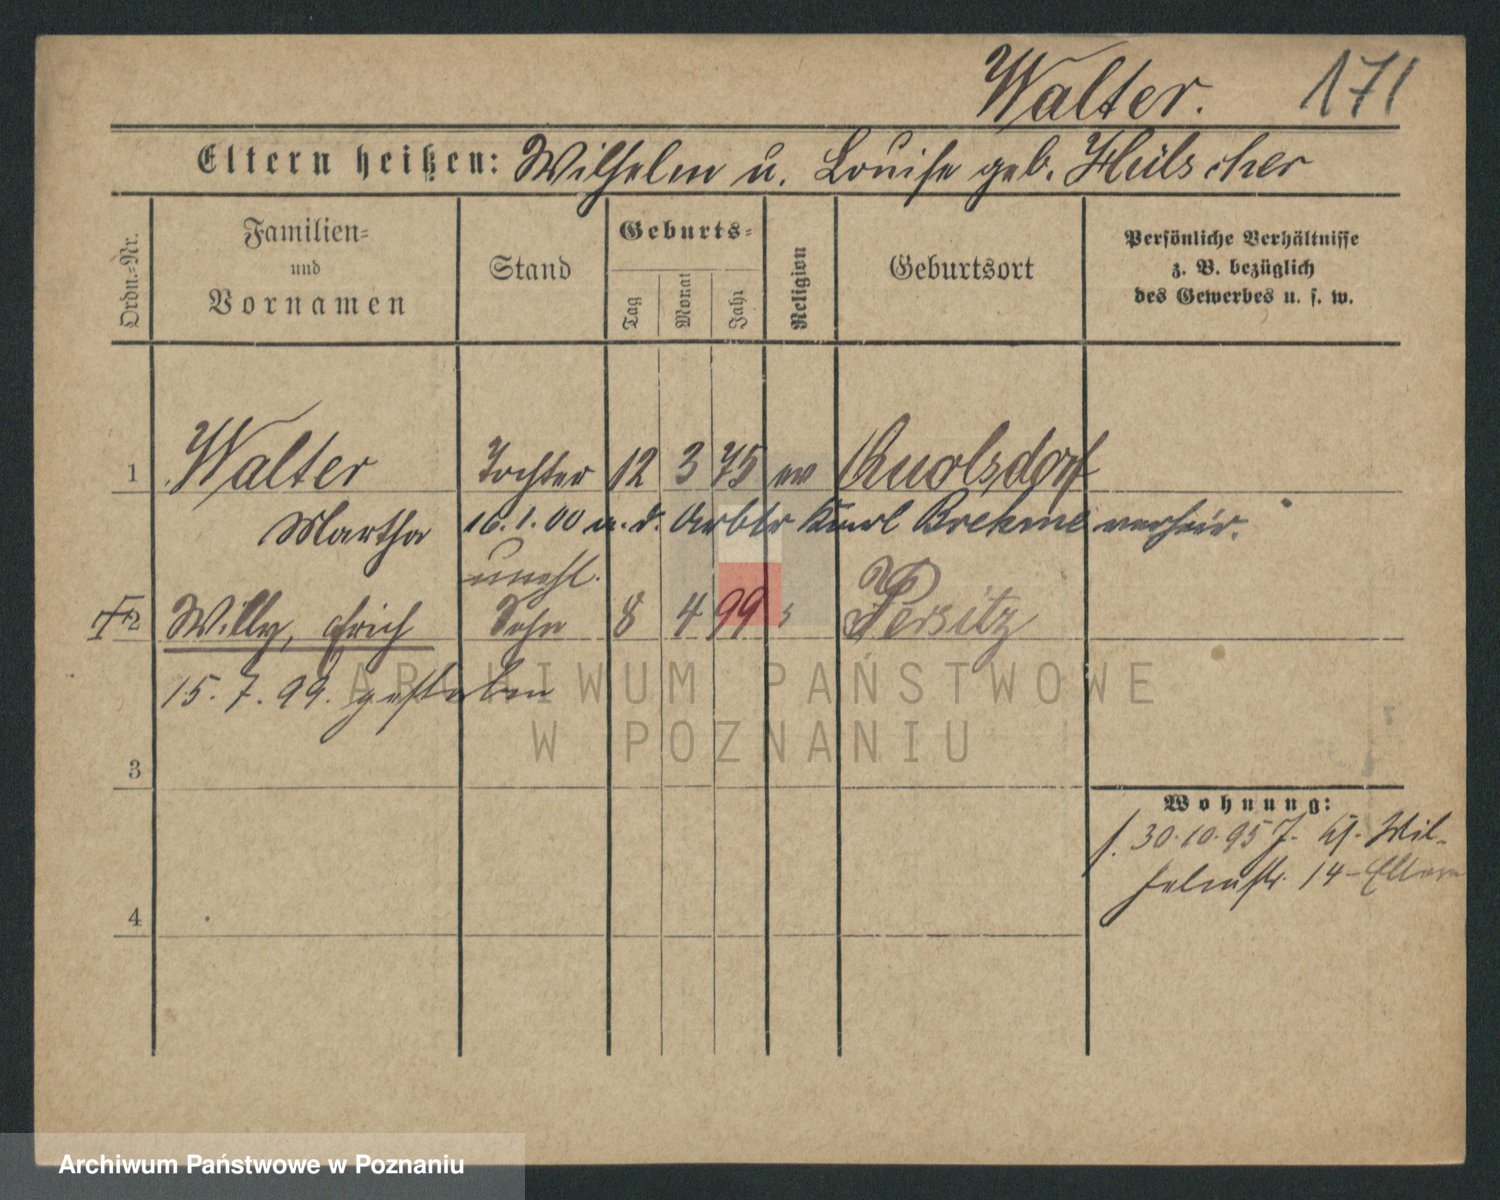 Walter. 171
Eltern heißen: Wilhelm u. Louise geb. Hülscher
Ordn.-Nr.
Familien-
und
Vornamen
Stand
Geburts-
Tag
Monat
Jahr
Religion
Geburtsort
Persönliche Verhältnisse
z. B. bezüglich
des Gewerbes u. s. w.
1 Walter Tochter 12 3 75 ev
Martha 16. 1. 00 m. d. Arbtr Karl Brehme verheir.
unehl.
2 Willy, Erich Sohn 8 4 99 Persitz
15. 7. 99. gestorben
ARCHIWUM PAŃSTWOWE
W POZNANIU
3
Wohnung:
30. 10. 95 J. Wil-
helmstr. 14 - Eltern
4
Archiwum Państwowe w Poznaniu